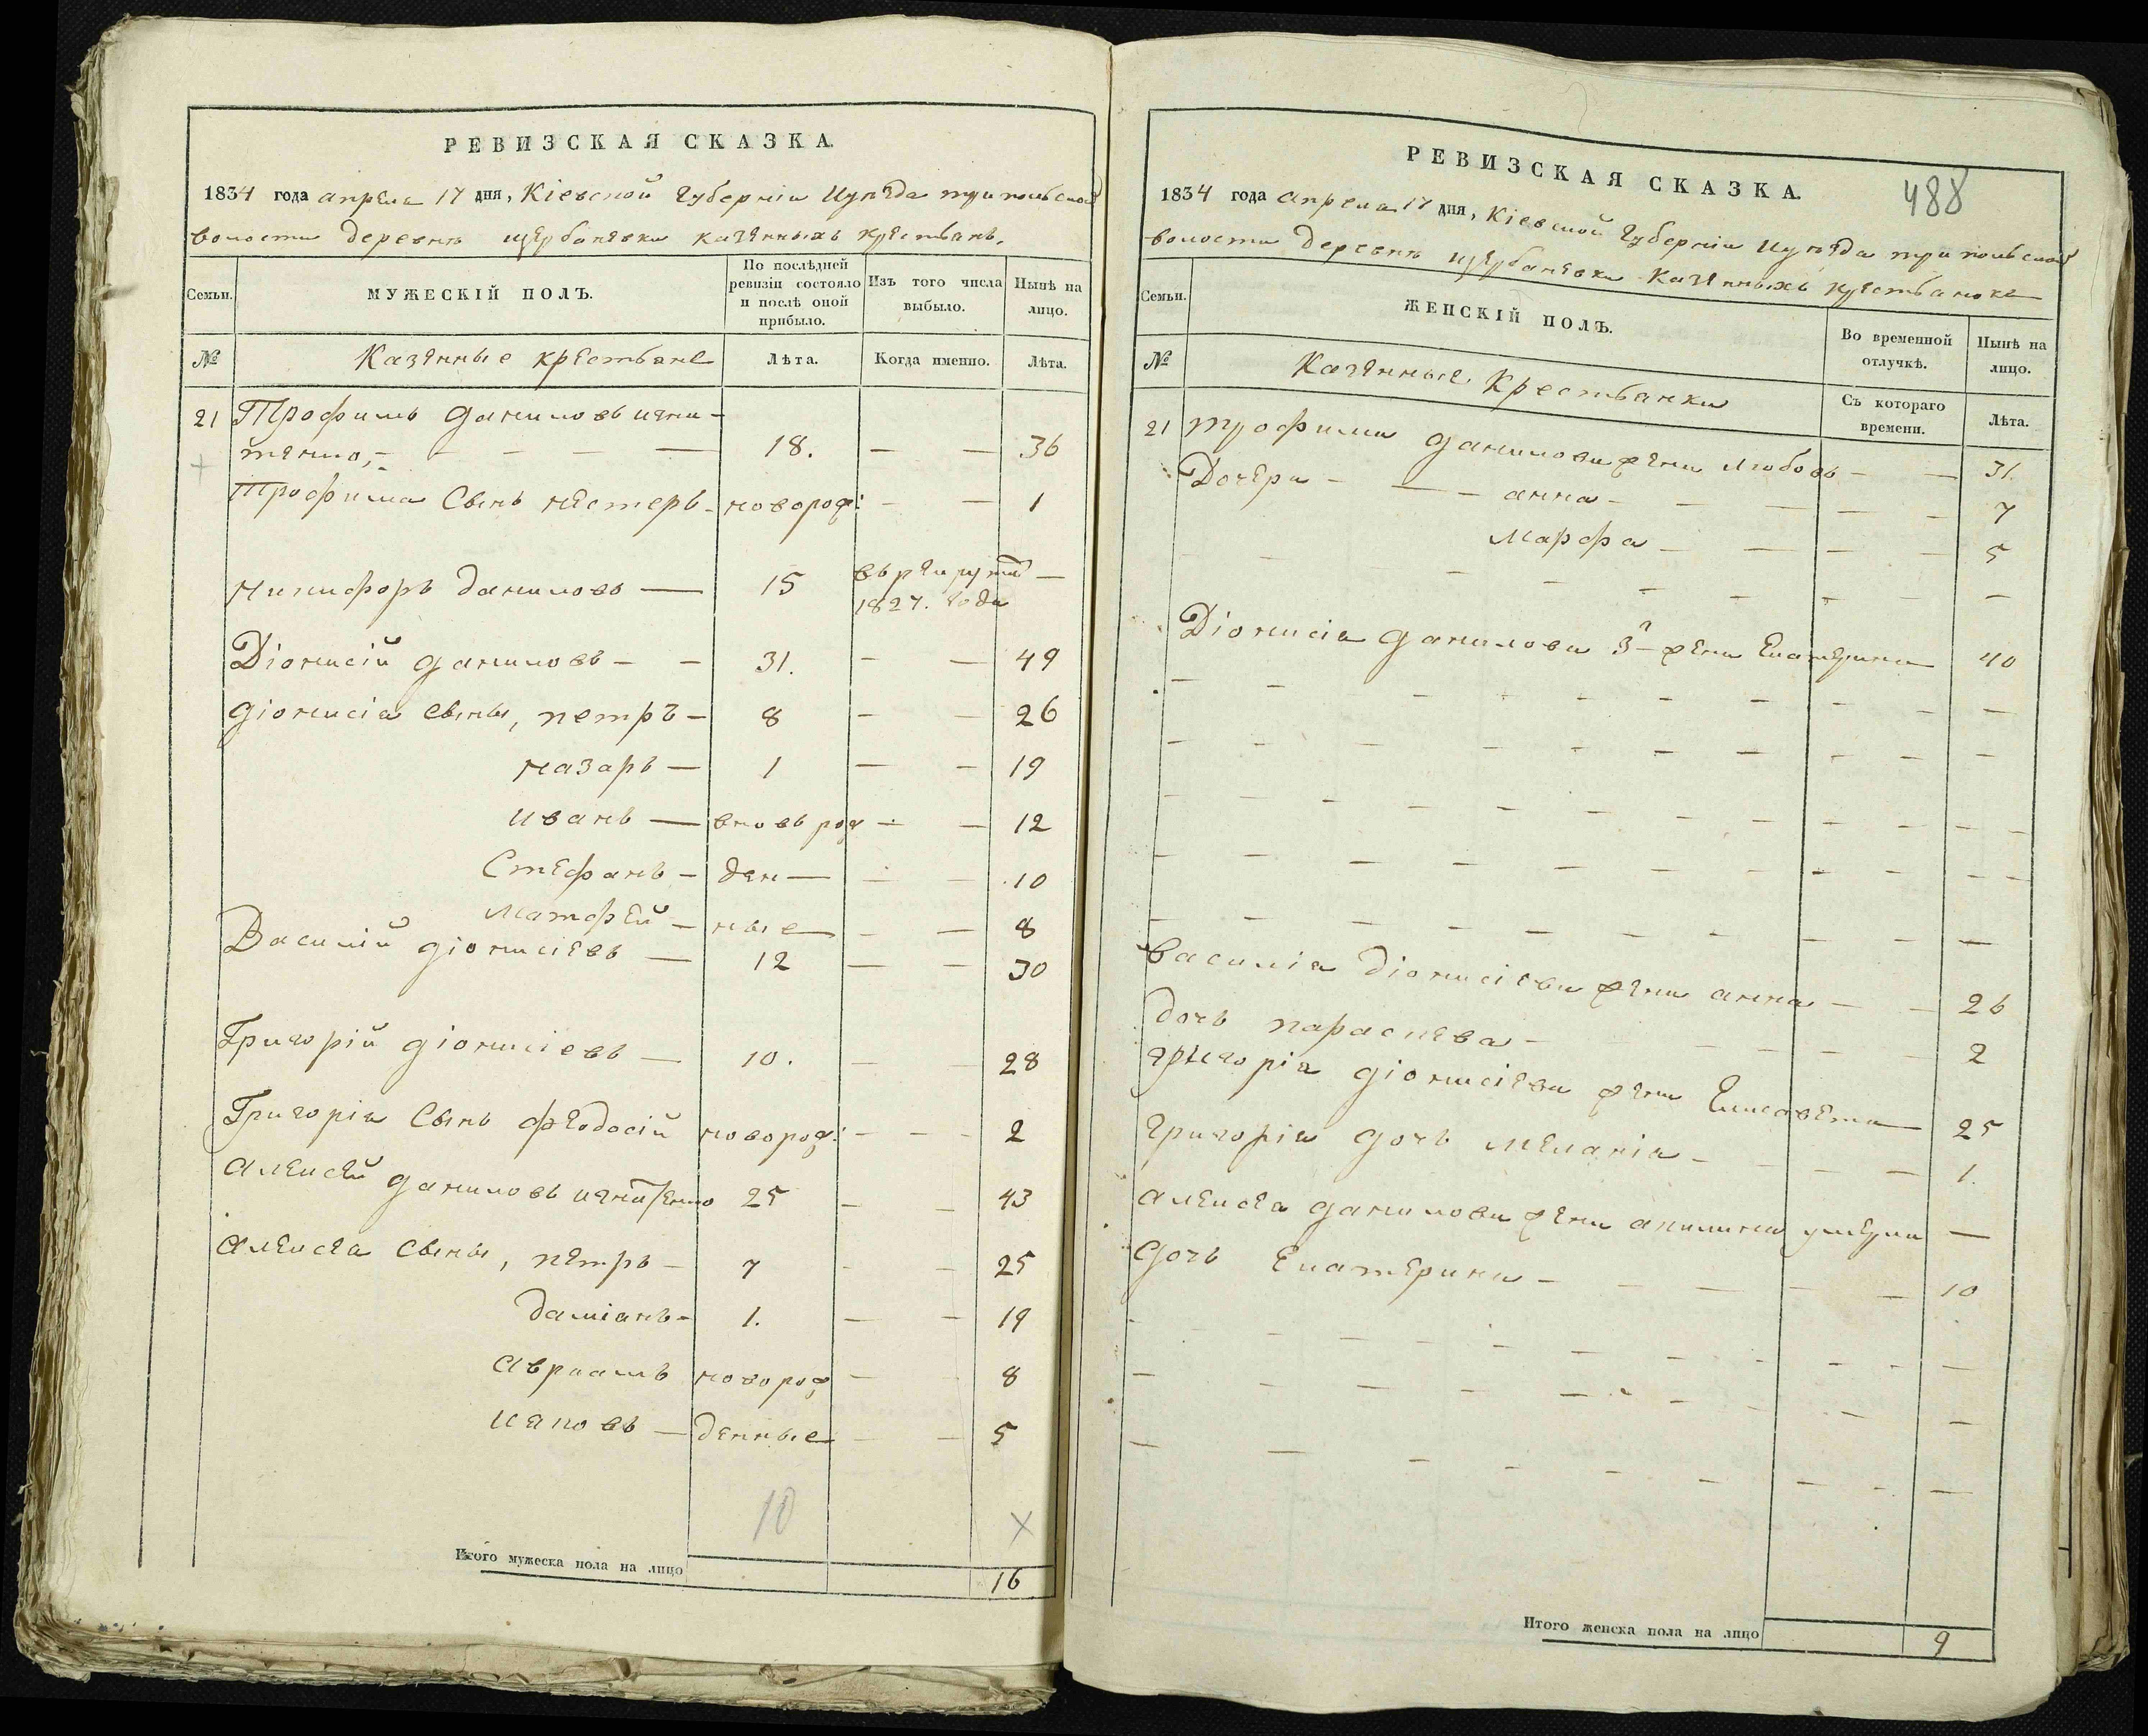 РЕВИЗСКАЯ СКАЗКА.
1834 года апреля 17 дня, Кіевской Губерніи И уѣзда трипольской
волости деревнѣ щербанѣвки казенныхъ крестьянъ.
Семьи.
МУЖЕСКІЙ ПОЛЪ.
По послѣдней ревизіи состояло и послѣ оной прибыло.
Изъ того числа выбыло.
Нынѣ на лицо.
№
Казенные крестьяне
Лѣта.
Когда именно.
Лѣта.
21 Трофимъ Даниловъ
18. — — 36
Трофима Сынъ нестеръ - новорож: - — 1
никифоръ даниловъ — 15 въ рекруты —
1827. года
Діонисій Даниловъ - - 31. - — 49
Діонисія сыны, петръ - 8 — — 26
назаръ — 1 — — 19
иванъ — вновь рож — — 12
Стефанъ - ден — — — 10
Матфей - ные — — 8
Василій Діонисіевъ — 12 — — 30
Григорій Діонисіевъ — 10. — — 28
Григорія Сынъ феодосій новорож: - - - 2
Алексей Даниловъ 25 - - 43
Алексея Сыны, петръ - 7 - - 25
даміанъ - 1. — - 19
Авраамъ новорож — 8
иаковъ — денные — — 5
10 ×
Итого мужеска пола на лицо
16
РЕВИЗСКАЯ СКАЗКА.
488
1834 года апреля 17 дня, Кіевской Губерніи И уѣзда трипольской
волости деревнѣ щербанѣвки казенныхъ крестьянокъ
Семьи.
ЖЕНСКІЙ ПОЛЪ.
Во временной отлучкѣ.
Нынѣ на лицо.
№
Казенные Крестьянки
Съ котораго времени.
Лѣта.
21 трофима Данилова жена любовь - — 31.
Дочери - — - анна - — — - 7
Марфа - — — - 5
Діонисія Данилова 3я жена Екатерина — 40
Василія Діонисіева жена анна — - 26
дочь параскева - - - - 2
григорія Діонисіева жена Елисавета — 25
Григорія Дочь меланія - - - — 1.
Алексея Данилова жена акилина умерла —
Дочь Екатерина - - — — - 10
Итого женска пола на лицо
9